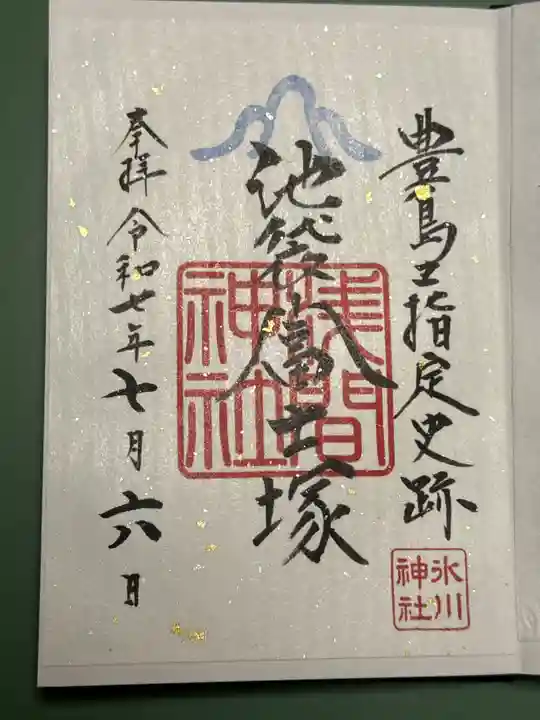 豊島区指定史跡
池袋富士塚
奉拝 令和七年七月六日
浅間
神社
氷川
神社